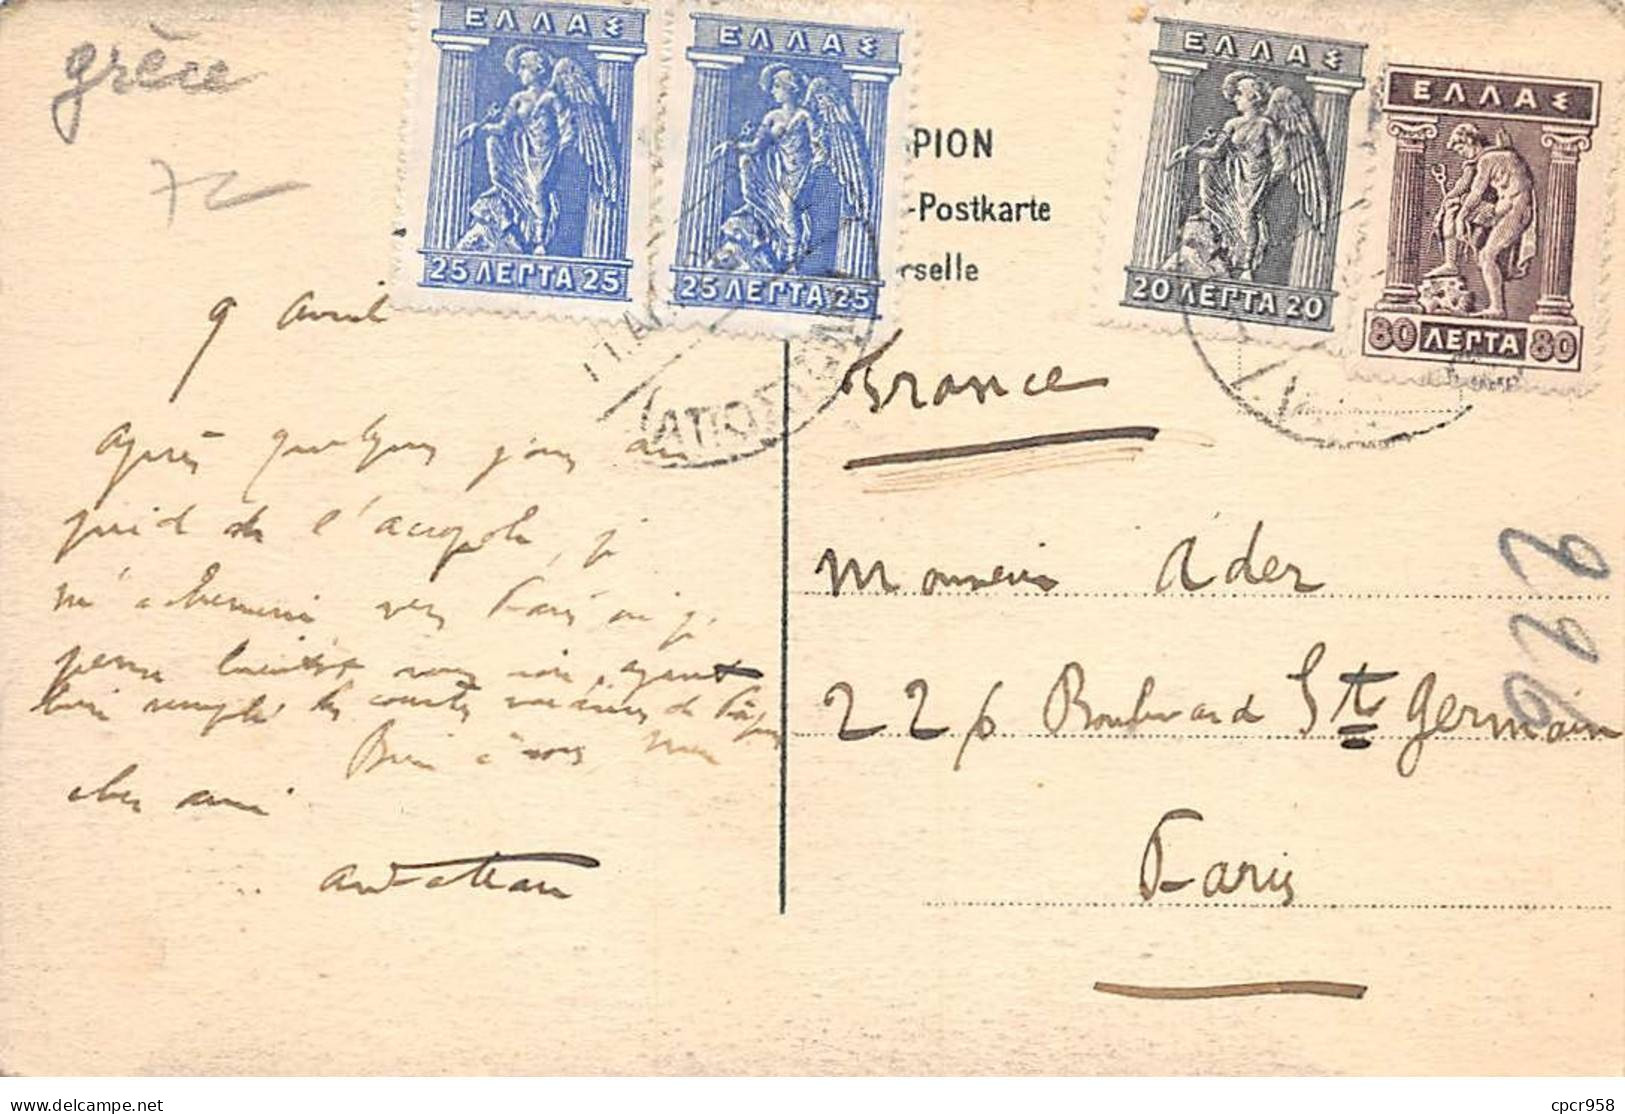 grèce
72
ΕΛΛΑΣ
25 ΛΕΠΤΑ 25
ΕΛΛΑΣ
25 ΛΕΠΤΑ 25
ΕΛΛΑΣ
20 ΛΕΠΤΑ 20
ΕΛΛΑΣ
80 ΛΕΠΤΑ 80
PION
-Postkarte
rselle
9 avril
après quelques jours au
pied de l'acropole, je
m'achemine vers Paris où je
pense bientôt vous voir, ayant
bien rempli les courtes vacances de Pâques
Bien à vous, mon
cher ami
France
Monsieur Ader
226 Boulevard St Germain
Paris
226
cpcr958